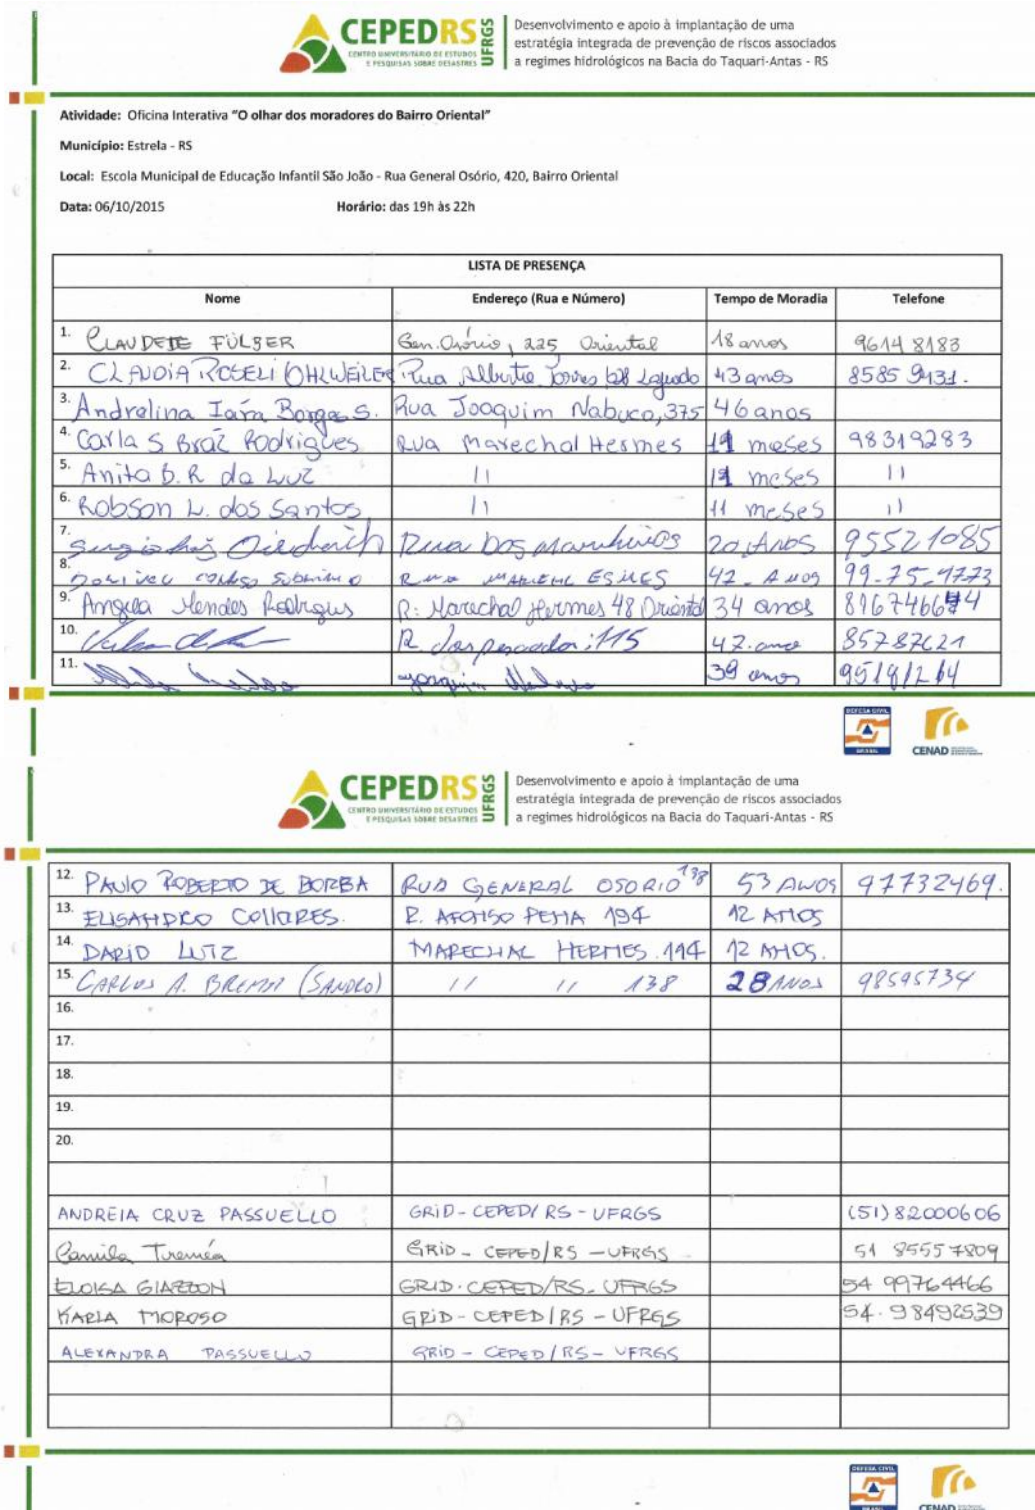 CEPEDRS UFRGS
CENTRO UNIVERSITÁRIO DE ESTUDOS
E PESQUISAS SOBRE DESASTRES
Desenvolvimento e apoio à implantação de uma
estratégia integrada de prevenção de riscos associados
a regimes hidrológicos na Bacia do Taquari-Antas - RS
Atividade: Oficina Interativa "O olhar dos moradores do Bairro Oriental"
Município: Estrela - RS
Local: Escola Municipal de Educação Infantil São João - Rua General Osório, 420, Bairro Oriental
Data: 06/10/2015 Horário: das 19h às 22h
LISTA DE PRESENÇA
Nome Endereço (Rua e Número) Tempo de Moradia Telefone
1. CLAUDETE FÜLBER Gen. Osório, 225 Oriental 18 anos 9614 8183
2. CLAUDIA ROSELI OHLWEILER Rua Alberto Torres Lajeado 43 anos 8585 9431.
3. Andrelina Iara Borges S. Rua Joaquim Nabuco, 375 46 anos
4. Carla S Braz Rodrigues Rua Marechal Hermes 11 meses 98319283
5. Anita B. R da Luz 11 meses
6. Robson L. dos Santos 11 meses
7. Diedrich Rua Dos Marinheiros 20 Anos 95521085
8. 42 - Anos 99-75-9773
9. Angela Mendes Rodrigues R: Marechal Hermes 48 Oriental 34 anos
10. R. dos pescador: 115 47 anos 85787621
11. Joaquim Nabuco 39 anos
CEPEDRS UFRGS
CENTRO UNIVERSITÁRIO DE ESTUDOS
E PESQUISAS SOBRE DESASTRES
Desenvolvimento e apoio à implantação de uma
estratégia integrada de prevenção de riscos associados
a regimes hidrológicos na Bacia do Taquari-Antas - RS
DEFESA CIVIL
BRASIL
CENAD
12. PAULO ROBERTO DE BORBA RUA GENERAL OSORIO 138 53 ANOS 97732469.
13. ELISANDRO COLLARES. R. AFONSO PENA 194 12 ANOS
14. DARIO LUTZ MARECHAL HERMES 194 12 ANOS.
15. CARLOS A. (SANDRO) 11 11 138 28 ANOS 98595734
16.
17.
18.
19.
20.
ANDREIA CRUZ PASSUELLO GRID - CEPED/RS - UFRGS (51) 82000606
Camila GRID - CEPED/RS - UFRGS 51 85557809
ELOISA GIAZZON GRID - CEPED/RS - UFRGS 54 99764466
KARLA MOROSO GRID - CEPED/RS - UFRGS 54. 98492539
ALEXANDRA PASSUELLO GRID - CEPED/RS - UFRGS
DEFESA CIVIL
BRASIL
CENAD